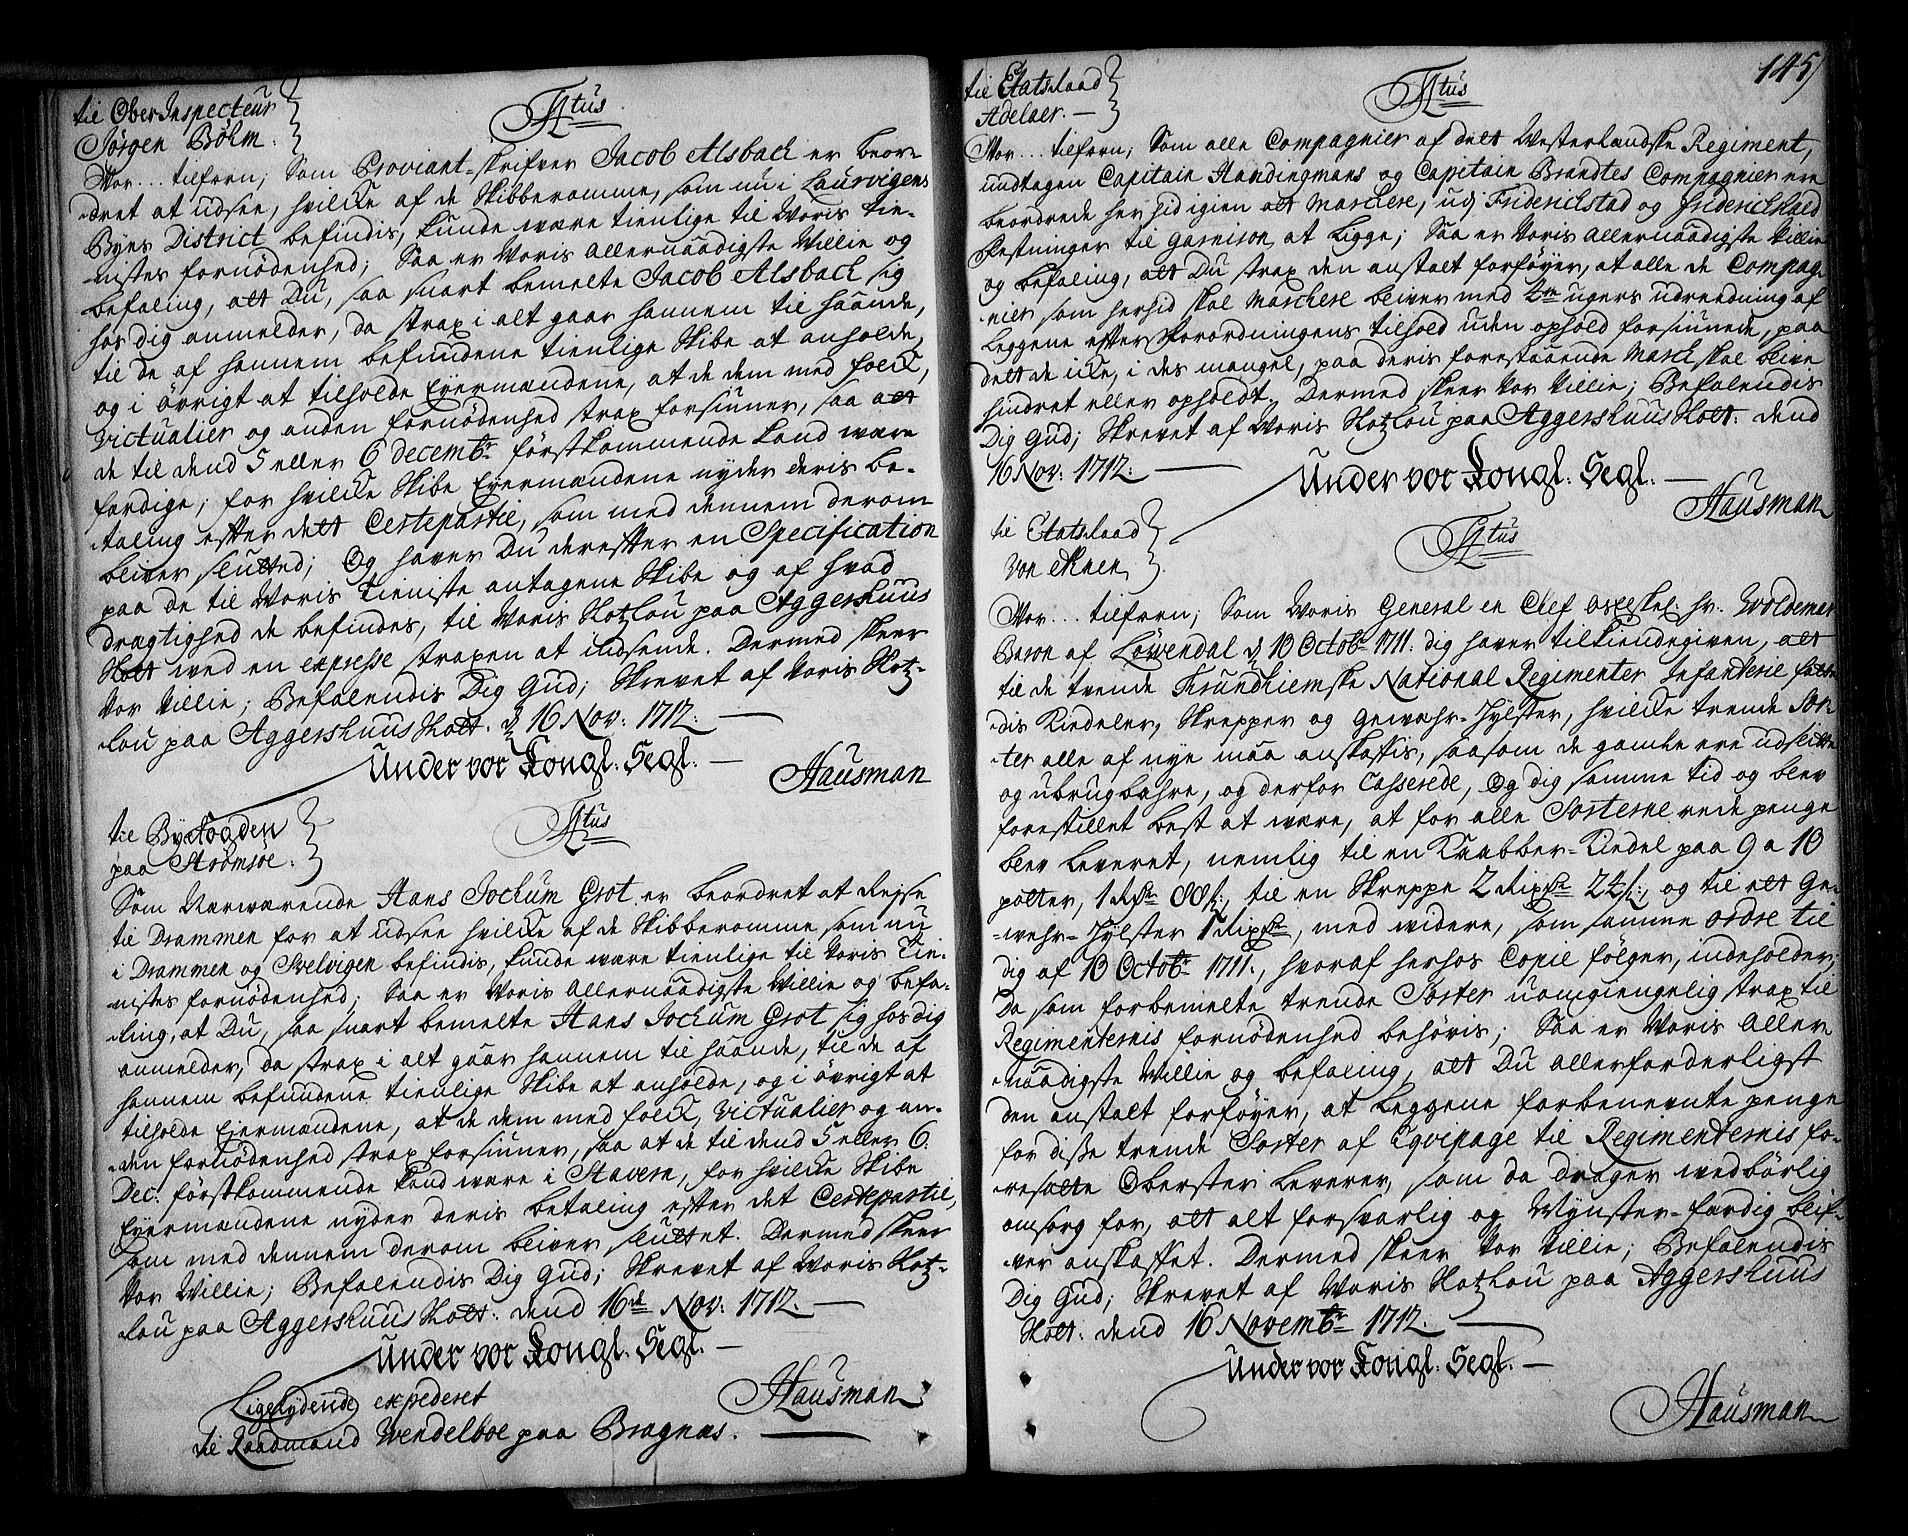 til Ober Inspecteur
Jørgen Bøhm.
Ttus
Vor... tilforn; Som Proviant-skrifver Jacob Alsbach er beor-
dret at udsee, hvilcke af de Skibberomme, som nu i Laurvigens
Byes District befindis, kunde være tienlige til Voris Tie-
nistes fornødenhed; Saa er Voris Allernaadigste Villie og
befaling, att Du, saa snart bemelte Jacob Alsbach sig
hos dig anmelder, da strax i alt gaar hannem til haande,
til de af hannem befundene tienlige Skibe at anholde,
og i øvrigt at tilholde Eyermændene, at de dem med folck,
Victualier og anden fornødenhed strax forsiuner, saa att
de til dend 5 eller 6 decembr: førstkommende kand være
færdige; for hvilcke Skibe Eyermændene nyder deris be-
taling efter dett Certepartie, som med dennem derom
bliver slutted; Og haver Du derefter en Specification
paa de til Voris Tieniste antagene Skibe og af hvad
drægtighed de befindes, til Voris Slotzlou paa Aggershuus
Slott med en expresse straxen at indsende. Dermed skeer
Vor Villie; Befalendis Dig Gud; Skrevet af Voris Slotz-
lou paa Aggershuus Slott. d 16 Nov: 1712.
Under vor Kongl. Segl.
Hausman
til Byfogden
paa Strømsøe.
Ttus
Som Nærværende Hans Jochum Grot er beordret at Rejse
til Drammen for at udsee hvilcke af de Skibberomme som nu
i Drammen og Svelvigen befindis, kunde være tienlige til Voris Tie-
nistes fornødenhed; Saa er Voris Allernaadigste Villie og befa-
ling, at Du, saa snart bemelte Hans Jochum Grot sig hos dig
anmelder, da strax i alt gaar hannem til haande, til de af
hannem befundene tienlige Skibe at anholde, og i øvrigt at
tilholde Ejermændene, at de dem med folck, Victualier og an-
den fornødenhed strax forsiuner, saa at de til dend 5 eller 6.
Dec: førstkommende kand være i Stavern, for hvilcke Skibe
Eyermændene nyder deris betaling efter det Certepartie,
som med dennem derom bliver sluttet. Dermed skeer
Vor Villie; Befalendis Dig Gud; Skrevet af Voris Slotz-
lou paa Aggershuus Slott: dend 16de Nov: 1712.
Under vor Kongl. Segl.
Hausman
Ligelydende expederet
til Raadmand Wendelboe paa Bragnæs.
145
til Etatsraad
Adelaer.
Ttus
Vor... tilforn; Som alle Compagnier af dett Vesterlandske Regiment,
undtagen Capitain Handingmans og Capitain Brandtes Compagnier ere
beordrede her hid igien att Marchere, udj Friderichstad og Friderichshald
Festninger til Garnison at ligge; Saa er Voris Allernaadigste Villie
og befaling, att Du strax den anstalt forføyer, at alle de Compag-
nier som herhid skal Marchere bliver med 2de ugers udreedning af
Leggene efter Forordningens tilhold uden ophold forsiunede, paa
dett de icke, i des mangel, paa deris forestaaende March skal blive
hindret eller opholdt. Dermed skeer Vor Villie; Befalendis
Dig Gud; Skrevet af Voris Slotzlou paa Aggershuus Slott: dend
16 Nov: 1712:
Under vor Kongl. Segl.
Hausman
til Etatsraad
Von Ahnen
Ttus
Vor... tilforn; Som Voris General en Chef hr. Woldemar
Baron af Løwendal d 10 Octobr 1711. dig haver tilkiendegiven, att
til de tvende Trundhiemske National Regimenter Infanterie fatte-
dis Kiedeler, Skrepper og Gewehr-Hylster, hvilcke trende Sor-
ter alle af nye maa anskaffis, saasom de gamle ere udslitte
og ubrugbahre, og derfor Casserede, Og dig samme tid og blev
forestillet best at være, at for alle Sorterne rede penge
blev leveret, nemlig til en Knabber-Kiedel paa 9 a 10
potter, 1 Rdr 88 s, til en Skreppe 2 Rixdr 24 s:, og til ett Ge-
wehr-Hylster 1 Rixdr, med videre, som samme ordre til
dig af 10 Octobr 1711., hvoraf herhos Copie følger, indeholder;
Da som forbemelte trende Sorter uomgiengelig strax til
Regimenternis fornødenhed behøvis; Saa er Voris Aller-
naadigste Villie og befaling, att Du allerforderligst
den anstalt forføyer, at Leggene forbenevnte penge
for disse trende Sorter af Eqvipage til Regimenternis fo-
resatte Oberster leverer, som da drager wedbørlig
omsorg for, att alt forsvarlig og Mynster-færdig blif-
ver anskaffet. Dermed skeer Vor Villie; Befalendis
Dig Gud; Skrevet af Voris Slotzlou paa Aggershuus
Slott: dend 16 Novembr 1712.
Under vor Kongl. Segl.
Hausman